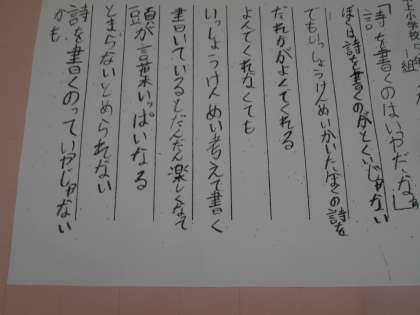 上小学校
組
「詩を書くのはいやだな」
ぼくは詩を書くのがとくいじゃない
でもいっしょうけんめいかいたぼくの詩を
だれかがよんでくれる
よんでくれなくても
いっしょうけんめい考えて書く
書いているとだんだん楽しくなって
頭が言葉でいっぱいなる
とまらないとめられない
詩を書くのっていやじゃない
かも